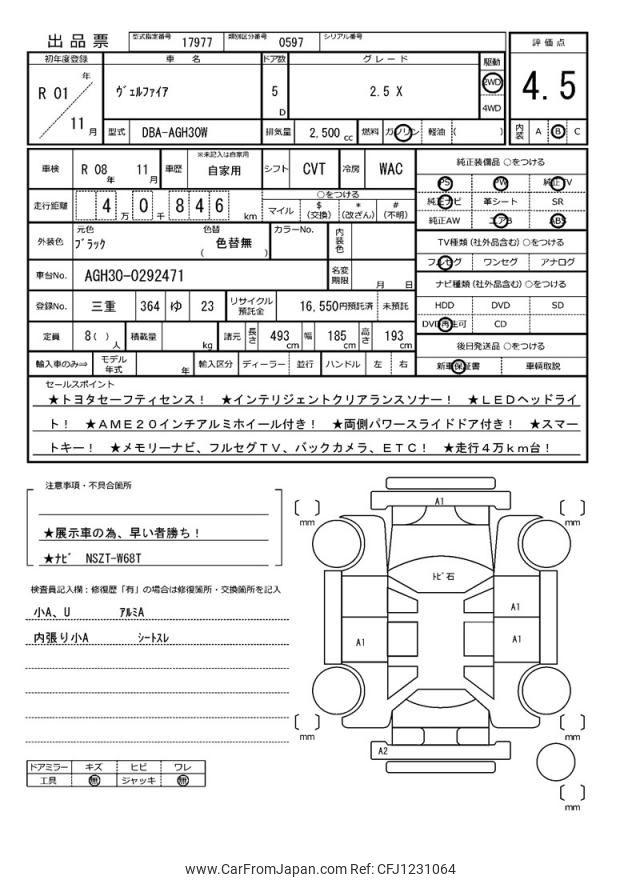 出品票 型式指定番号 17977 類別区分番号 0597 シリアル番号
評価点
初年度登録 車名 ドア数 グレード 駆動
R 01 年 11 月 ヴェルファイア 5 D 2.5 X 2WD 4WD
4.5
型式 DBA-AGH30W 排気量 2,500 cc 燃料 ガソリン 軽油 ( ) 内装 A B C
車検 R 08 年 11 月 車歴 ※未記入は自家用 自家用 シフト CVT 冷房 WAC
走行距離 4 万 0 千 8 4 6 km ○をつける
マイル $ (交換) * (改ざん) # (不明)
外装色 元色 ブラック 色替 ( 色替無 ) カラーNo. 内装色
車台No. AGH30-0292471 名変期限 月 日
登録No. 三重 364 ゆ 23 リサイクル預託金 16,550円預託済 未預託
定員 8 ( ) 人 積載量 kg 諸元 長さ 493 cm 幅 185 cm 高さ 193 cm
輸入車のみ⇒ モデル年式 年 輸入区分 ディーラー 並行 ハンドル 左 右
純正装備品 ○をつける
PS PW 純正TV
純正ナビ 革シート SR
純正AW エアB ABS
TV種類 (社外品含む) ○をつける
フルセグ ワンセグ アナログ
ナビ種類 (社外品含む) ○をつける
HDD DVD SD
DVD再生可 CD
後日発送品 ○をつける
新車保証書 車輌取説
セールスポイント
★トヨタセーフティセンス! ★インテリジェントクリアランスソナー! ★LEDヘッドライ
ト! ★AME20インチアルミホイール付き! ★両側パワースライドドア付き! ★スマー
トキー! ★メモリーナビ、フルセグTV、バックカメラ、ETC! ★走行4万km台!
注意事項・不具合箇所
★展示車の為、早い者勝ち!
★ナビ NSZT-W68T
検査員記入欄:修復歴「有」の場合は修復箇所・交換箇所を記入
小A、U アルミA
内張り小A シートスレ
ドアミラー キズ ヒビ ワレ
工具 無 ジャッキ 無
A1
mm
mm
トビ石
A1
A1
A1
mm
mm
A2
mm
www.CarFromJapan.com Ref: CFJ1231064